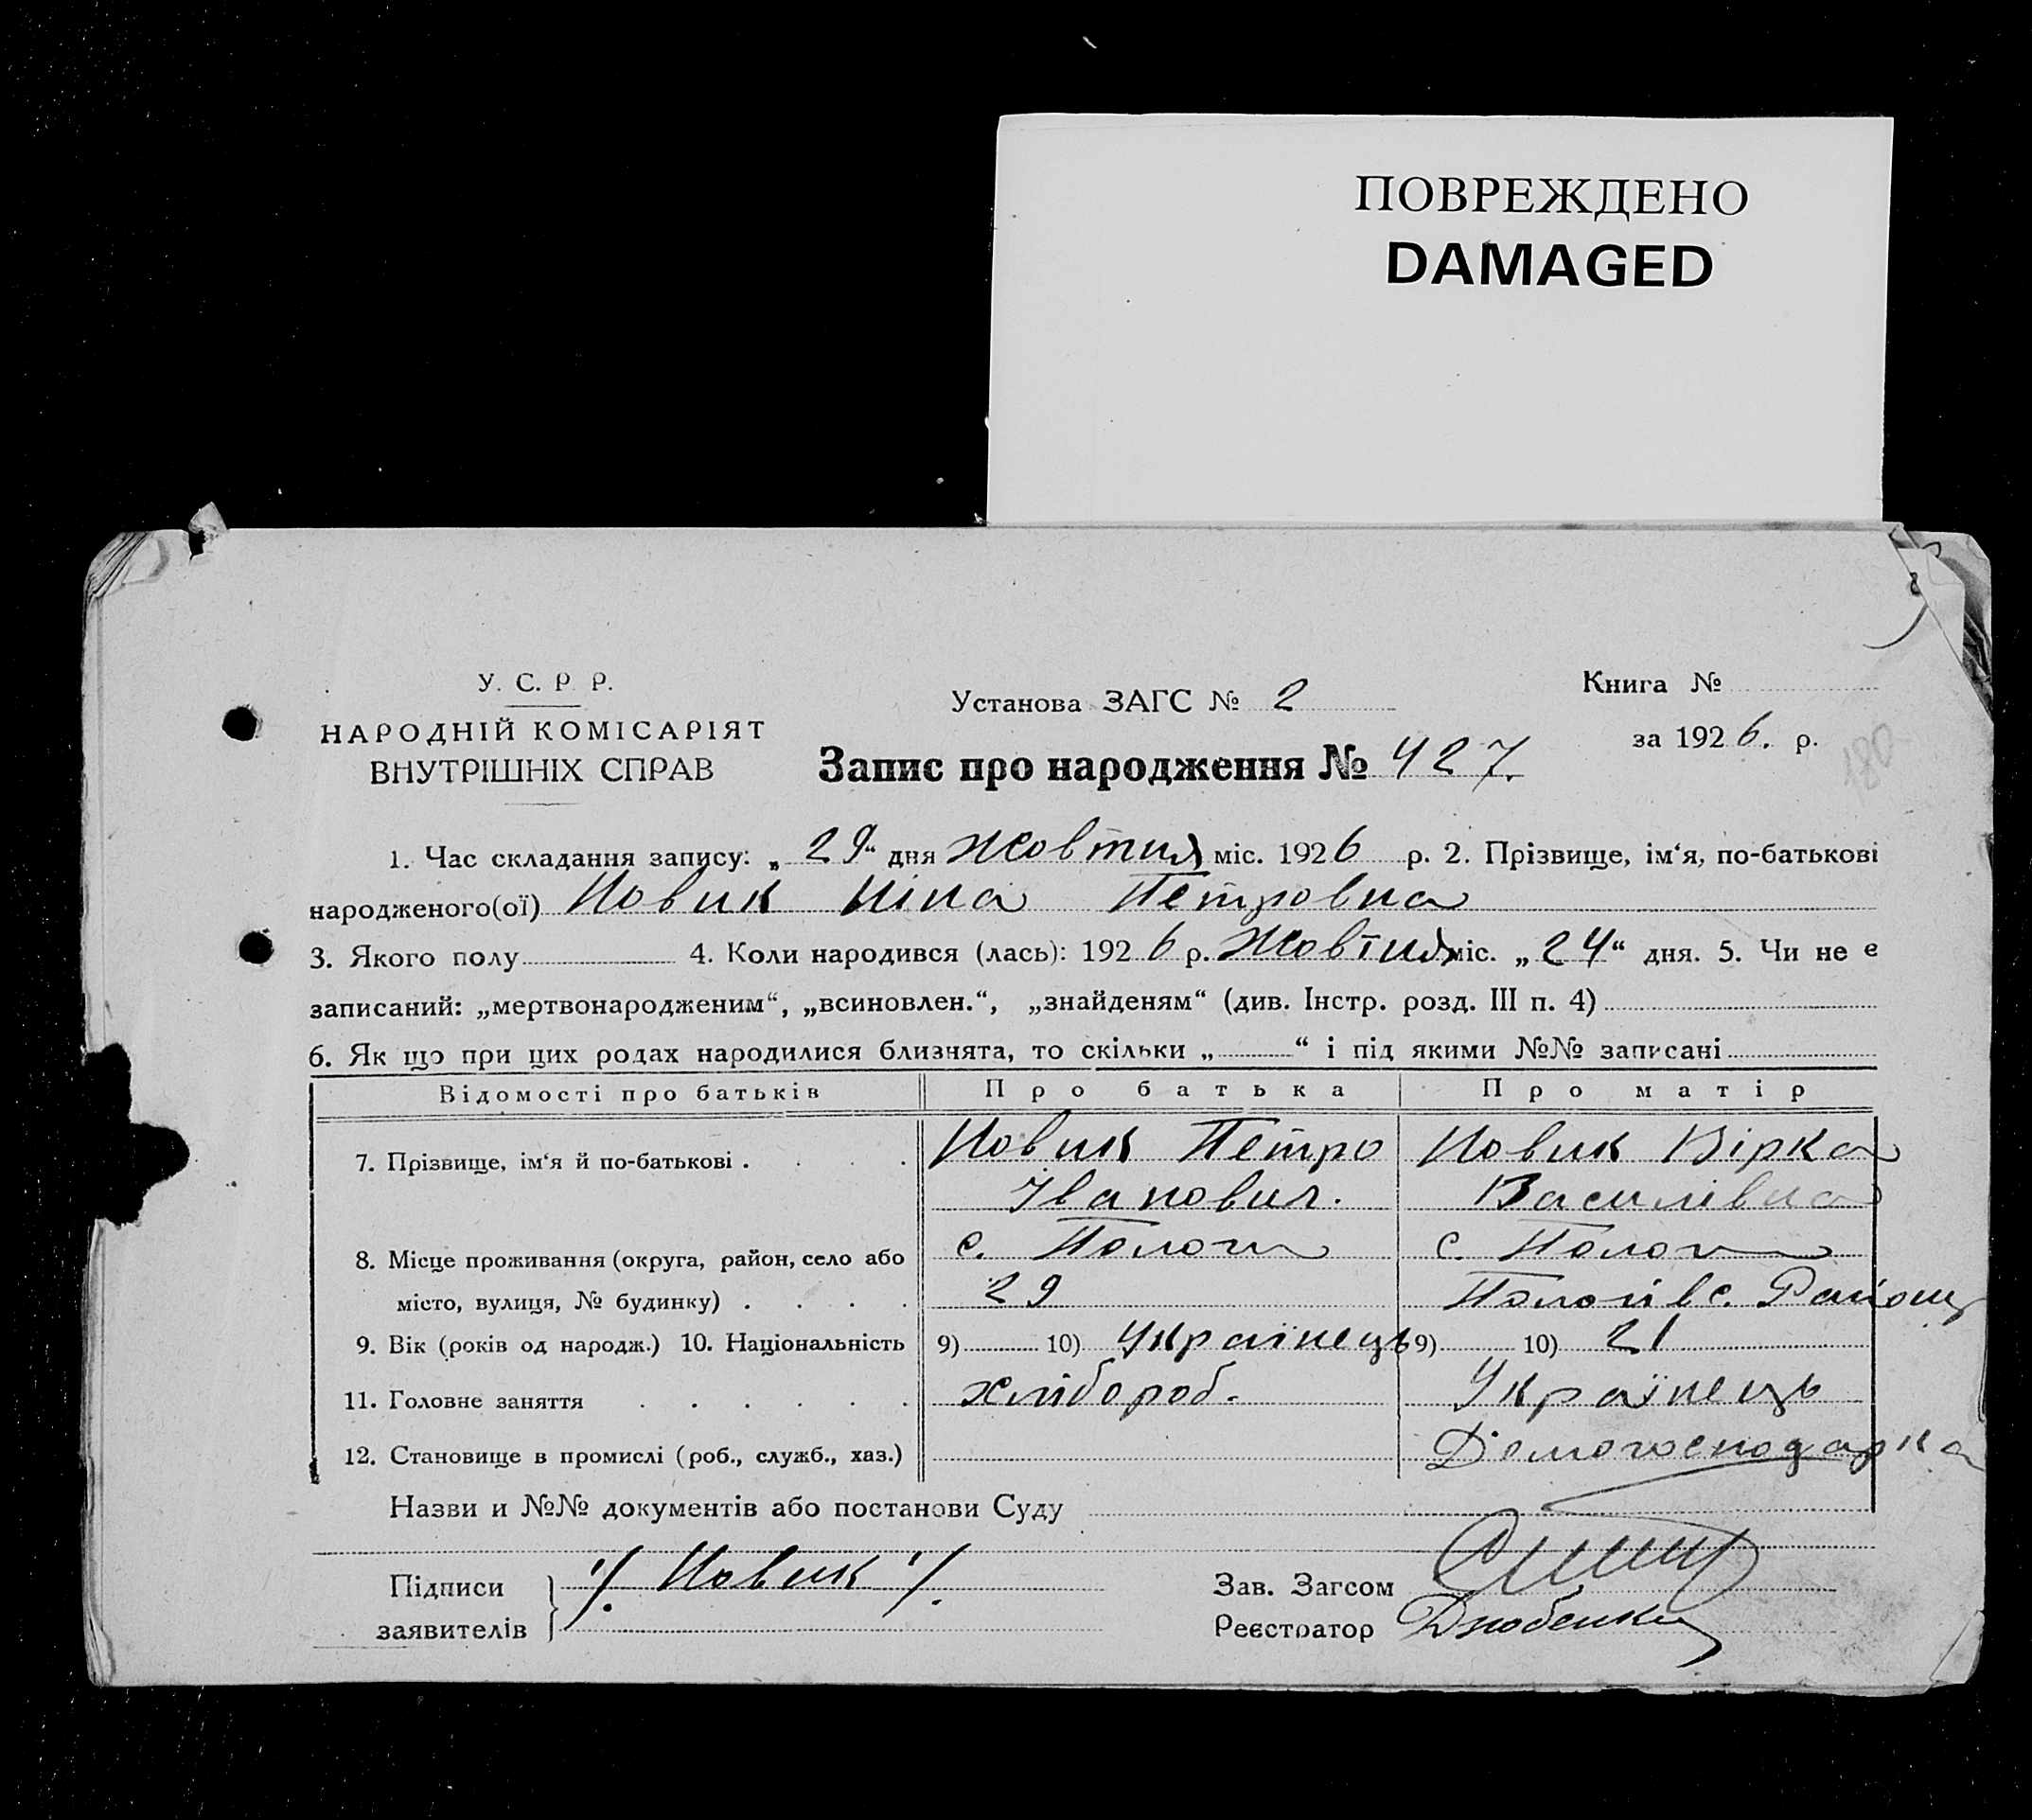 ПОВРЕЖДЕНО
DAMAGED
У. С. Р. Р.
НАРОДНІЙ КОМІСАРІЯТ
ВНУТРІШНІХ СПРАВ
Установа ЗАГС № 2
Запис про народження № 427.
Книга №
за 1926. р.
180
1. Час складання запису: „29“ дня Жовтня міс. 1926 р. 2. Прізвище, ім‘я, по-батькові
народженого(ої) Новик Ніна Петровна
3. Якого полу 4. Коли народився (лась): 1926 р. Жовтня міс. „24“ дня. 5. Чи не є
записаний: „мертвонародженим“, „всиновлен.“, „знайденям“ (див. Інстр. розд. III п. 4)
6. Як що при цих родах народилися близнята, то скільки „ “ і під якими №№ записані
Відомості про батьків Про батька Про матір
7. Прізвище, ім‘я й по-батькові . . . . Новик Петро Новик Вірка
Іванович. Василівна
8. Місце проживання (округа, район, село або с. Пологи с. Пологи
місто, вулиця, № будинку) . . . . 29 Пологівс. Району
9. Вік (років од народж.) 10. Національність 9) 10) Українець 9) 10) 21
11. Головне заняття . . . . . . хлібороб. Українець
12. Становище в промислі (роб., служб., хаз.) Домогосподарка
Назви и №№ документів або постанови Суду
Підписи ·/. Новик ·/.
заявителів
Зав. Загсом
Реєстратор